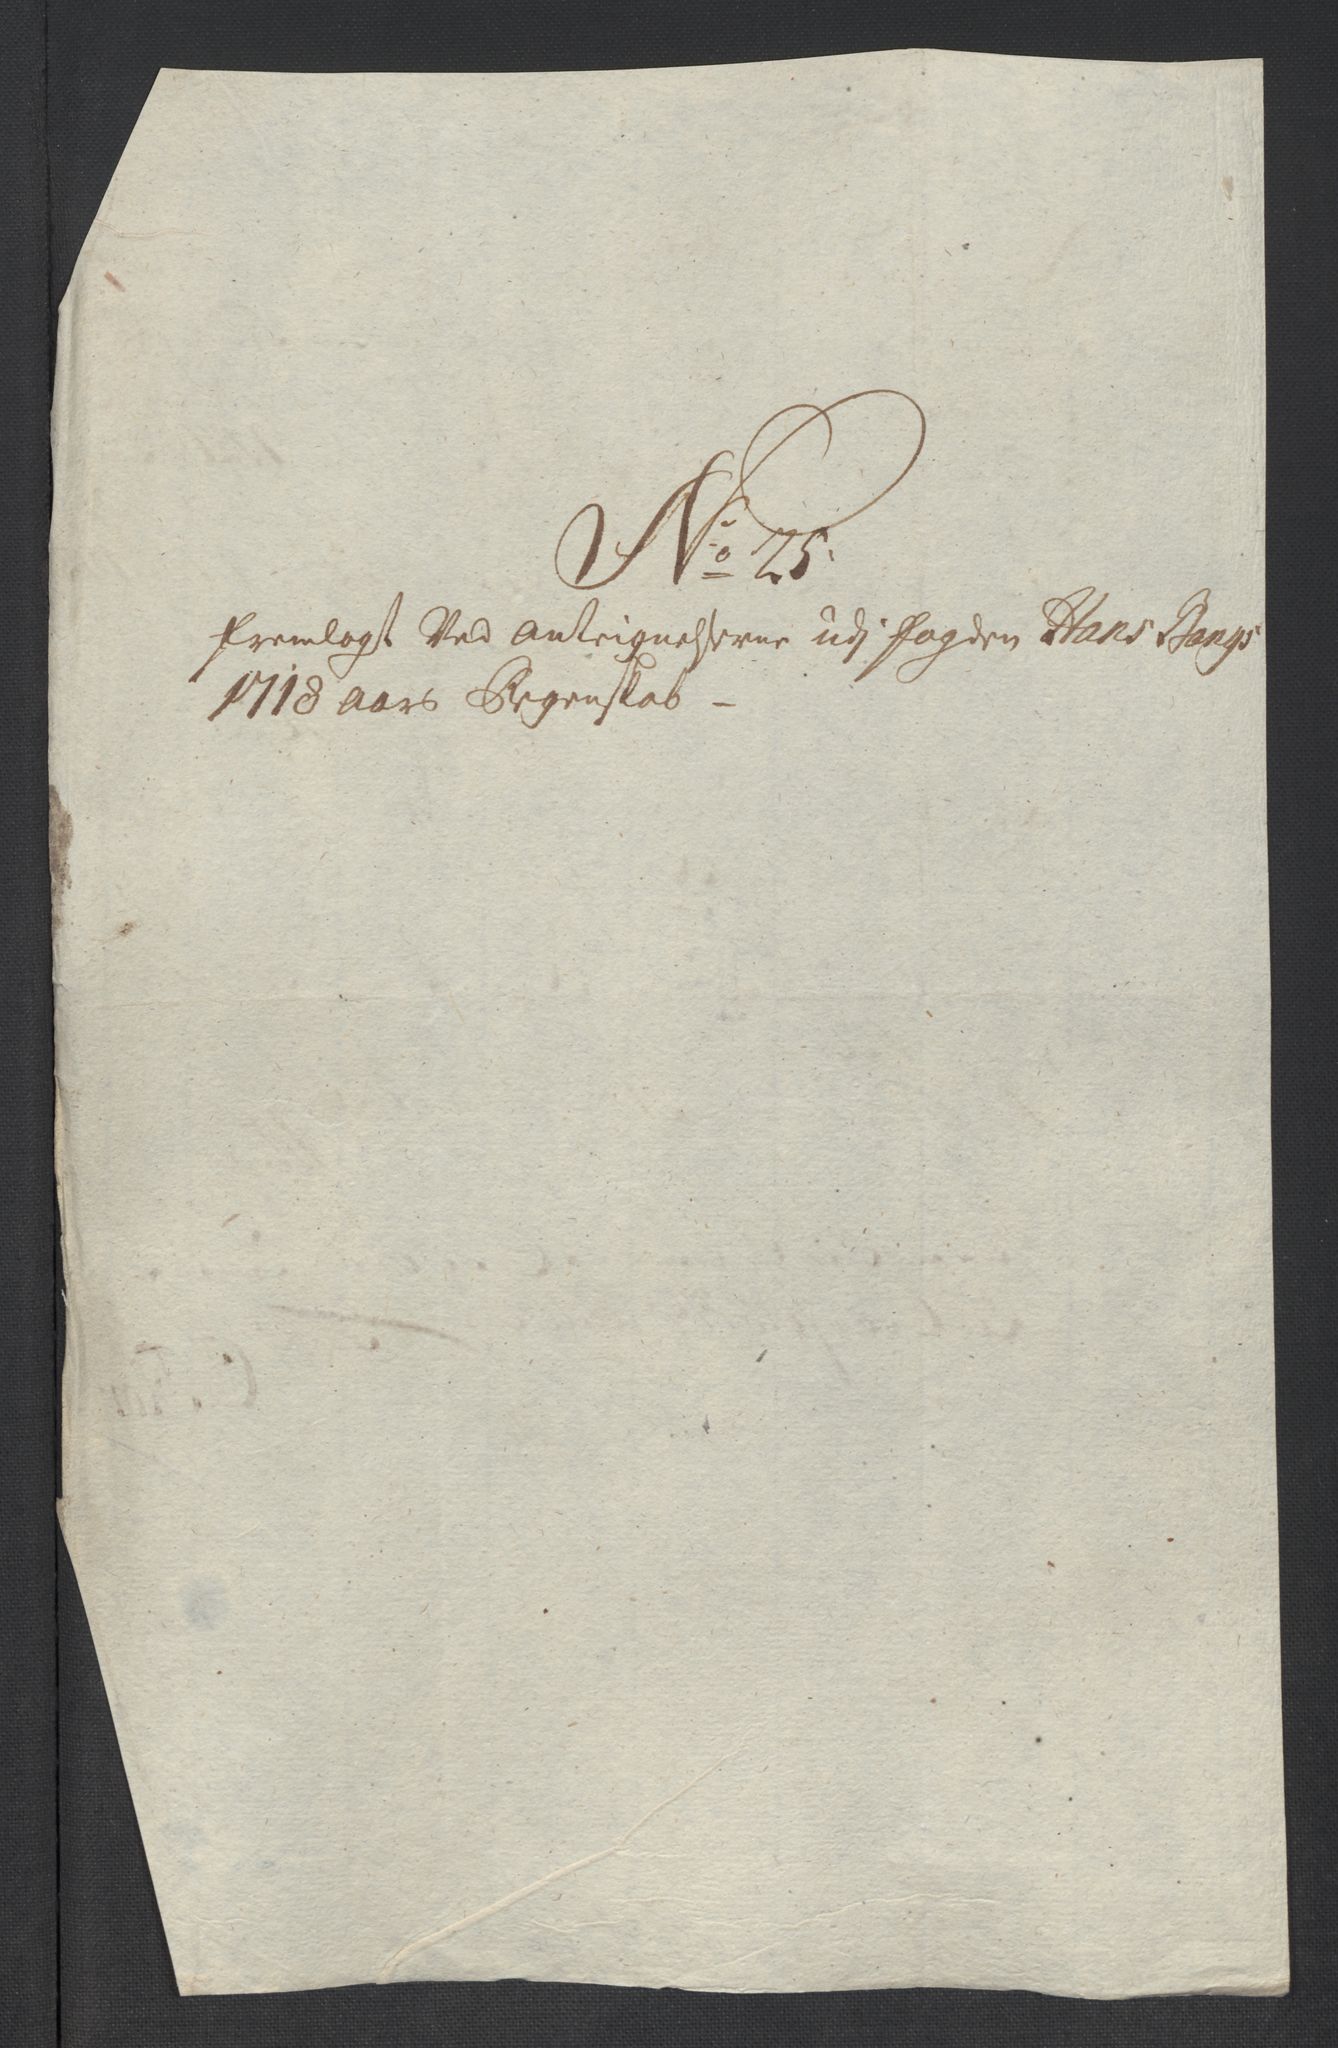 No 25.
Fremlagt Ved Anteignelserne udj fogden Hans Bangs
1718 aars Regenskab –